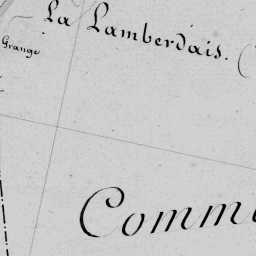 La Lamberdais.
Grange
Comm